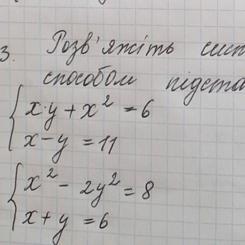 3. Розв'яжіть сист
способом підста
x·y + x² = 6
x - y = 11
x² - 2y² = 8
x + y = 6